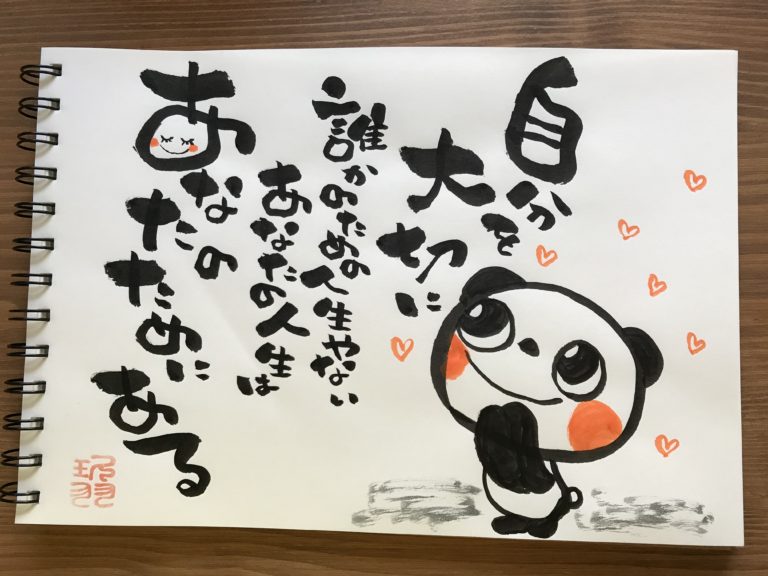 自分を
大切に
誰かのための人生やない
あなたの人生は
あなたの
ために
ある